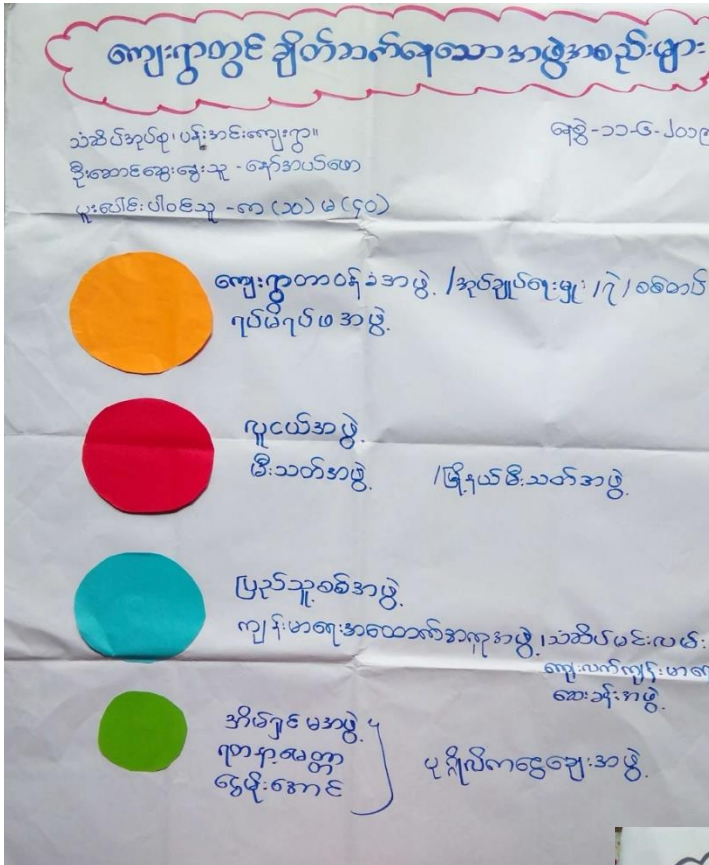 ကျေးရွာတွင် ချိတ်ဆက်နေသောအဖွဲ့အစည်းများ
သံဆိပ်အုပ်စု၊ ပန်းအင်းကျေးရွာ။
နေ့စွဲ-၁၁-၆-၂၀၁၉
ဦးဆောင်ဆွေးနွေးသူ -နော်အယ်ဖော
ပူးပေါင်းပါဝင်သူ -ကျာ (၁၀) မ (၄၀)
ကျေးရွာတာဝန်ခံအဖွဲ့ /အုပ်ချုပ်ရေးမှူး /ရဲ / စစ်တပ်
ရပ်မိရပ်ဖအဖွဲ့
လူငယ်အဖွဲ့
မီးသတ်အဖွဲ့ /မြို့နယ်မီးသတ်အဖွဲ့
ပြည်သူ့စစ်အဖွဲ့
ကျန်းမာရေးအထောက်အကူအဖွဲ့၊ သံဆိပ်မင်းလမ်း
ကျေးလက်ကျန်းမာရေး
ဆေးခန်းအဖွဲ့
အိမ်ရှင်မအဖွဲ့
ရတနာ့မေတ္တာ
ငွေမိုးအောင်
ပုဂ္ဂိုလိကငွေချေးအဖွဲ့